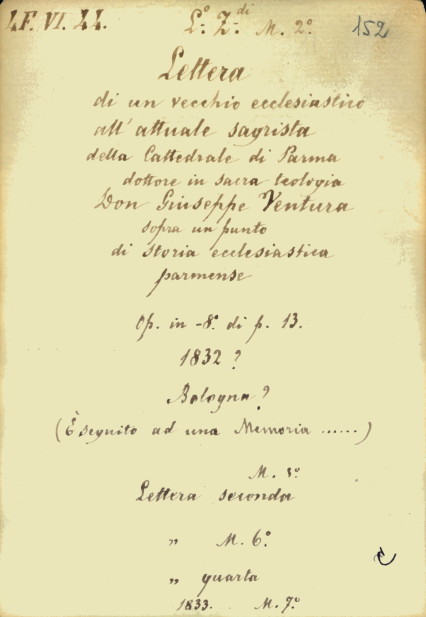 LF. VI. LL. L.º Z.di M. 2º. 152
Lettera
di un vecchio ecclesiastico
all'attuale sagrista
della Cattedrale di Parma
dottore in sacra teologia
Don Giuseppe Ventura
sopra un punto
di storia ecclesiastica
parmense
Op. in-8º. di p. 13.
1832?
Bologna?
(È seguito ad una Memoria ......)
Lettera seconda
„ M. 6º.
„ quarta
1833. M. 7º.